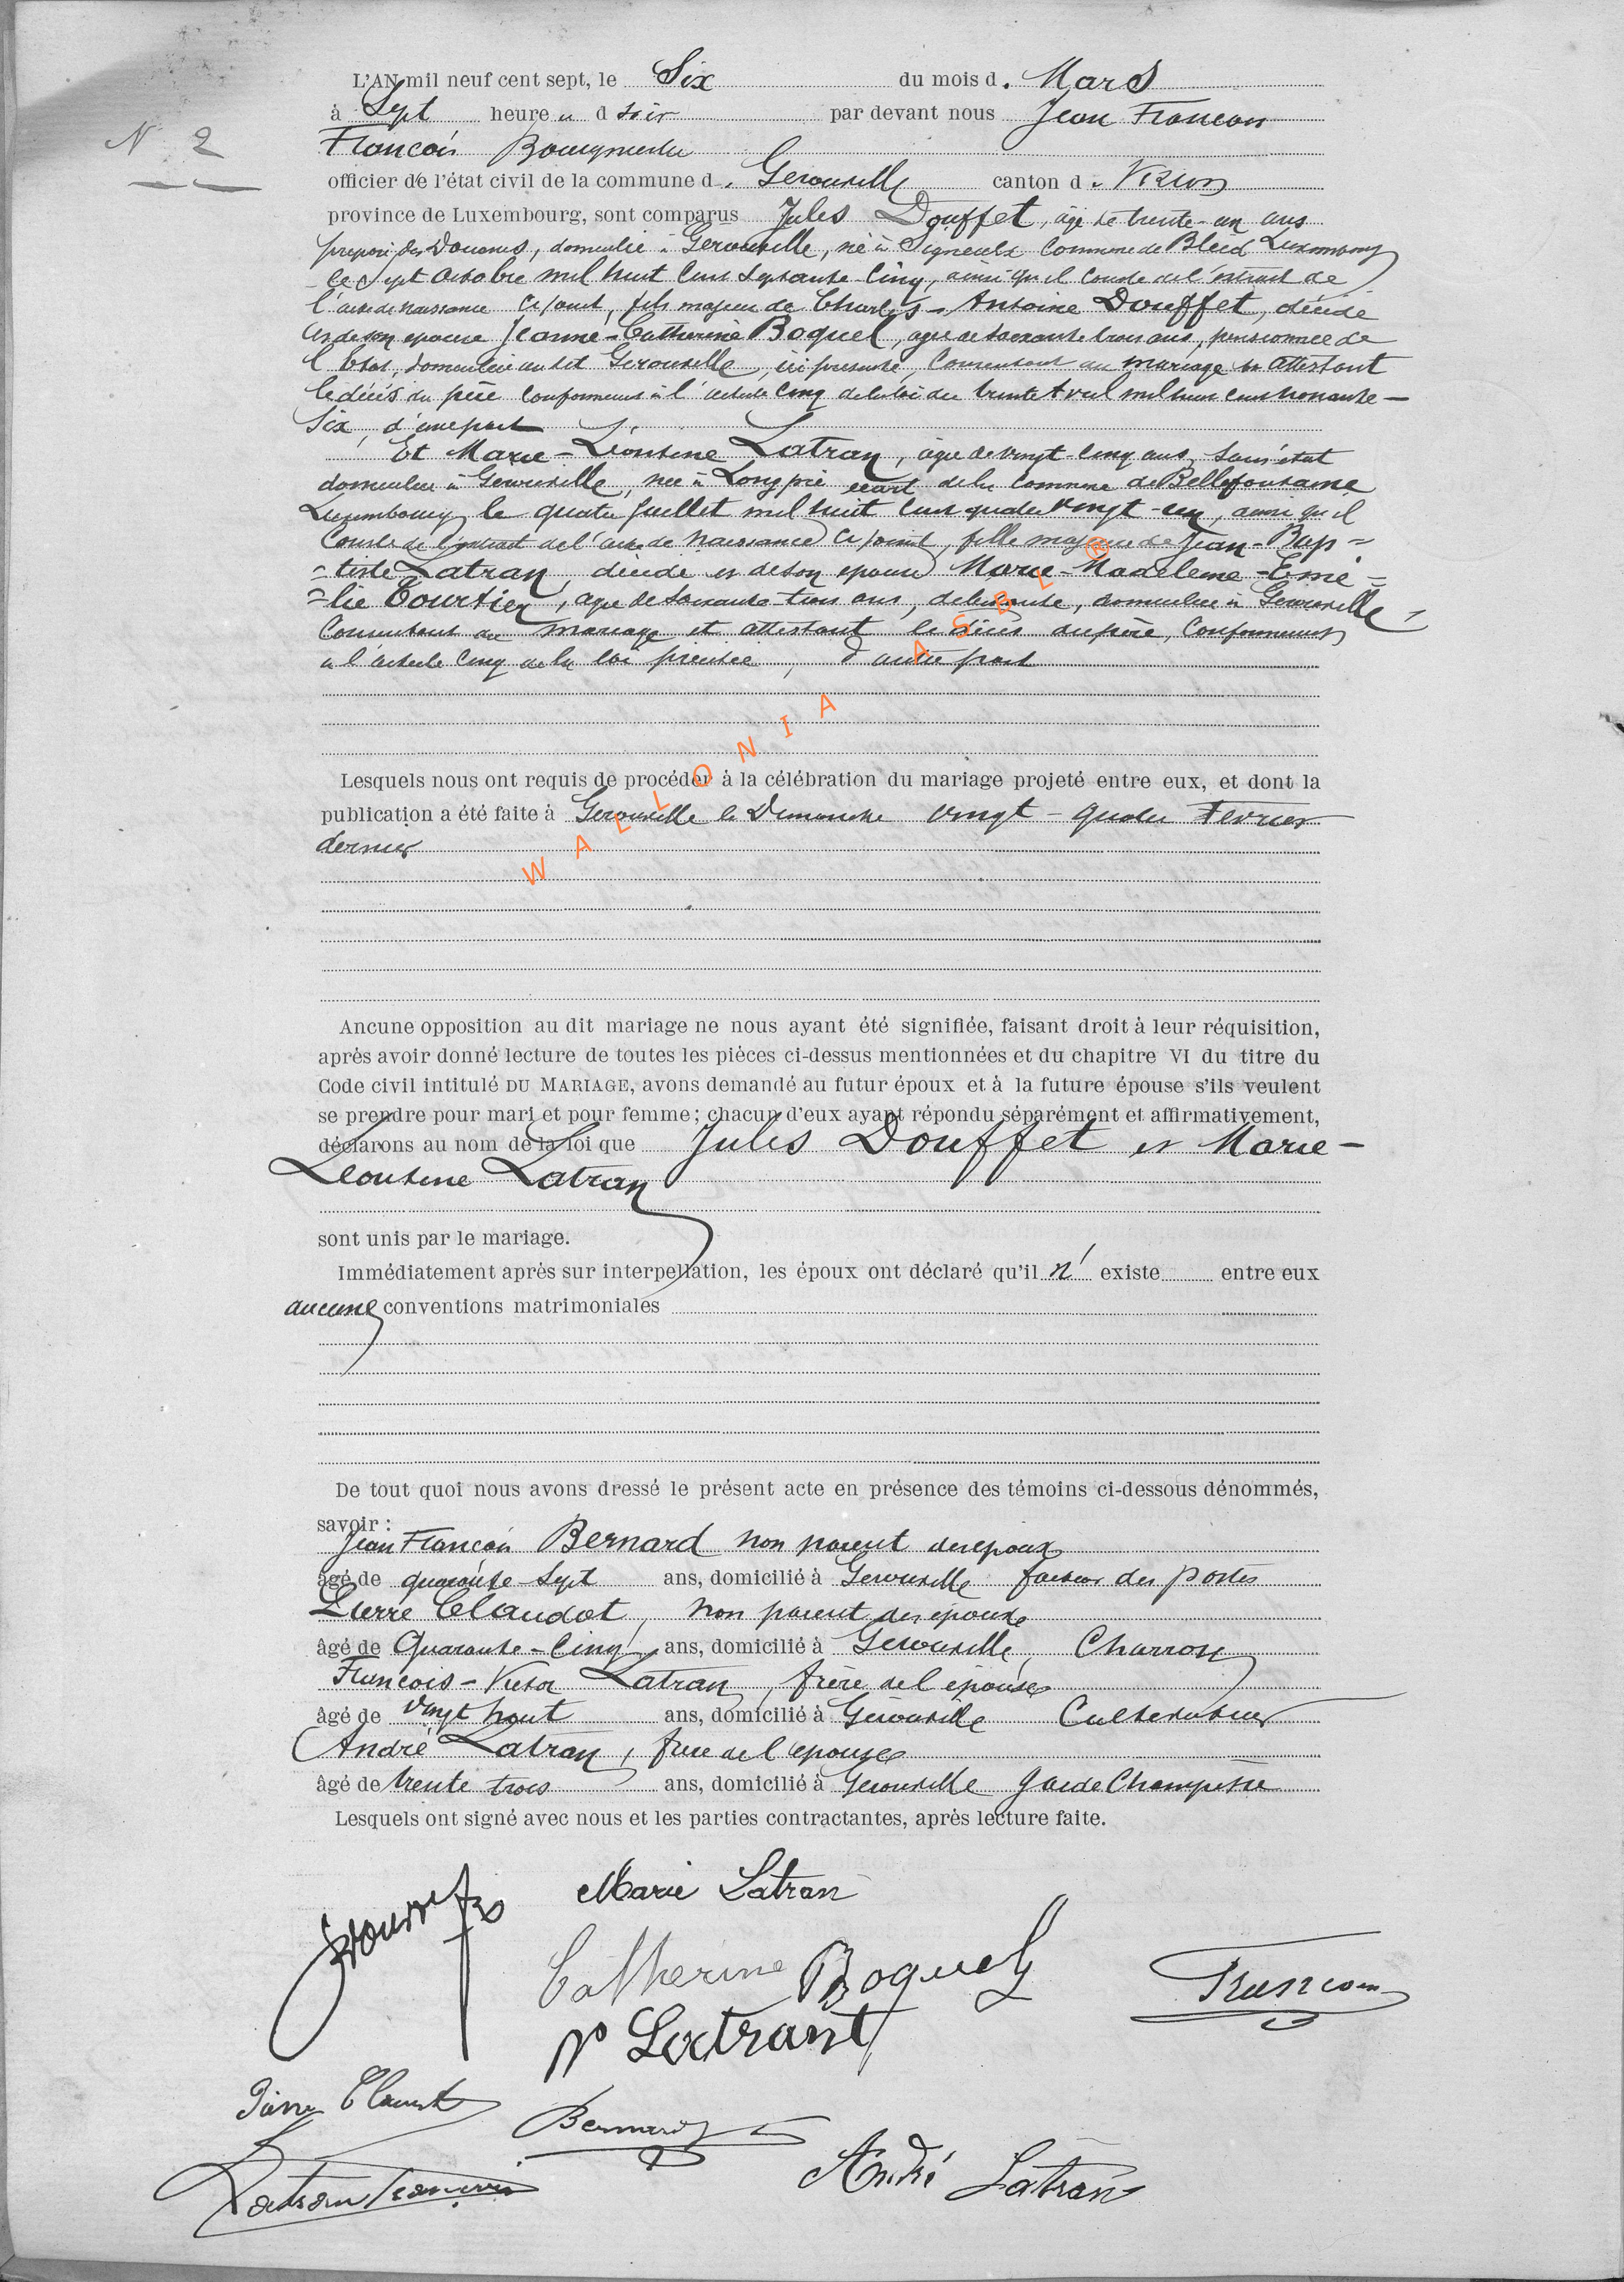 N 2
L'AN mil neuf cent sept, le Six du mois de Mars
à Sept heures du soir par devant nous Jean Francon
François Bourgmestre
officier de l'état civil de la commune de Gerouville canton de Virton
province de Luxembourg, sont comparus Jules Douffet, âgé de trente-un ans
préposé des Douanes, domicilié à Gerouville, né à Signeulx Commune de Bleid Luxembourg
le Sept Octobre mil huit Cent Septante-Cinq, ainsi qu'il Conste de l'extrait de
l'acte de naissance Ci joint, fils majeur de Charles-Antoine Douffet, décédé
et de son épouse Jeanne-Catherine Boquel, agée de soixante trois ans, pensionnée de
l'Etat, domiciliée au dit Gerouville, ici présente, Consentant au mariage et attestant
le décès du père Conformement à l'article Cinq de la loi du trente Avril mil huit cent nonante-
Six, d'une part
Et Marie-Léontine Latran, âgée de vingt-cinq ans, Sans état
domiciliée à Gerouville, née à Lonpré écart de la Commune de Bellefontaine
Luxembourg le quatre Juillet mil huit Cent quatre vingt-un, ainsi qu'il
Conste de l'extrait de l'acte de naissance Ci joint, fille majeure de Jean-Bap=
=tiste Latran, décédé et de son épouse Marie-Madeleine-Emé=
=lie Tourtier, agée de soixante-trois ans, , domiciliée à Gerouville,
Consentant au mariage et attestant le décès du père, Conformement
à l'article Cinq de la loi précitée, d'autre part
Lesquels nous ont requis de procéder à la célébration du mariage projeté entre eux, et dont la
publication a été faite à Gerouville le Dimanche vingt-quatre Fevrier
dernier
WALLONIA ASBL ®
Aucune opposition au dit mariage ne nous ayant été signifiée, faisant droit à leur réquisition,
après avoir donné lecture de toutes les pièces ci-dessus mentionnées et du chapitre VI du titre du
Code civil intitulé DU MARIAGE, avons demandé au futur époux et à la future épouse s'ils veulent
se prendre pour mari et pour femme; chacun d'eux ayant répondu séparément et affirmativement,
déclarons au nom de la loi que Jules Douffet et Marie-
Leontine Latran
sont unis par le mariage.
Immédiatement après sur interpellation, les époux ont déclaré qu'il n' existe entre eux
aucune conventions matrimoniales
De tout quoi nous avons dressé le présent acte en présence des témoins ci-dessous dénommés,
savoir :
Jean François Bernard non parent des époux
âgé de quarante-Sept ans, domicilié à Gerouville facteur des postes
Pierre Claudot, non parent des époux
âgé de Quarante-Cinq ans, domicilié à Gerouville, Charron
François-Victor Latran, frère de l'épouse
âgé de vingt huit ans, domicilié à Gerouville Cultivateur
André Latran, frère de l'épouse
âgé de trente trois ans, domicilié à Gerouville garde Champêtre
Lesquels ont signé avec nous et les parties contractantes, après lecture faite.
Marie Latran
Catherine Boquel
Francon
Latrant
Pierre Claudot
Bernard
André Latran
Latran François